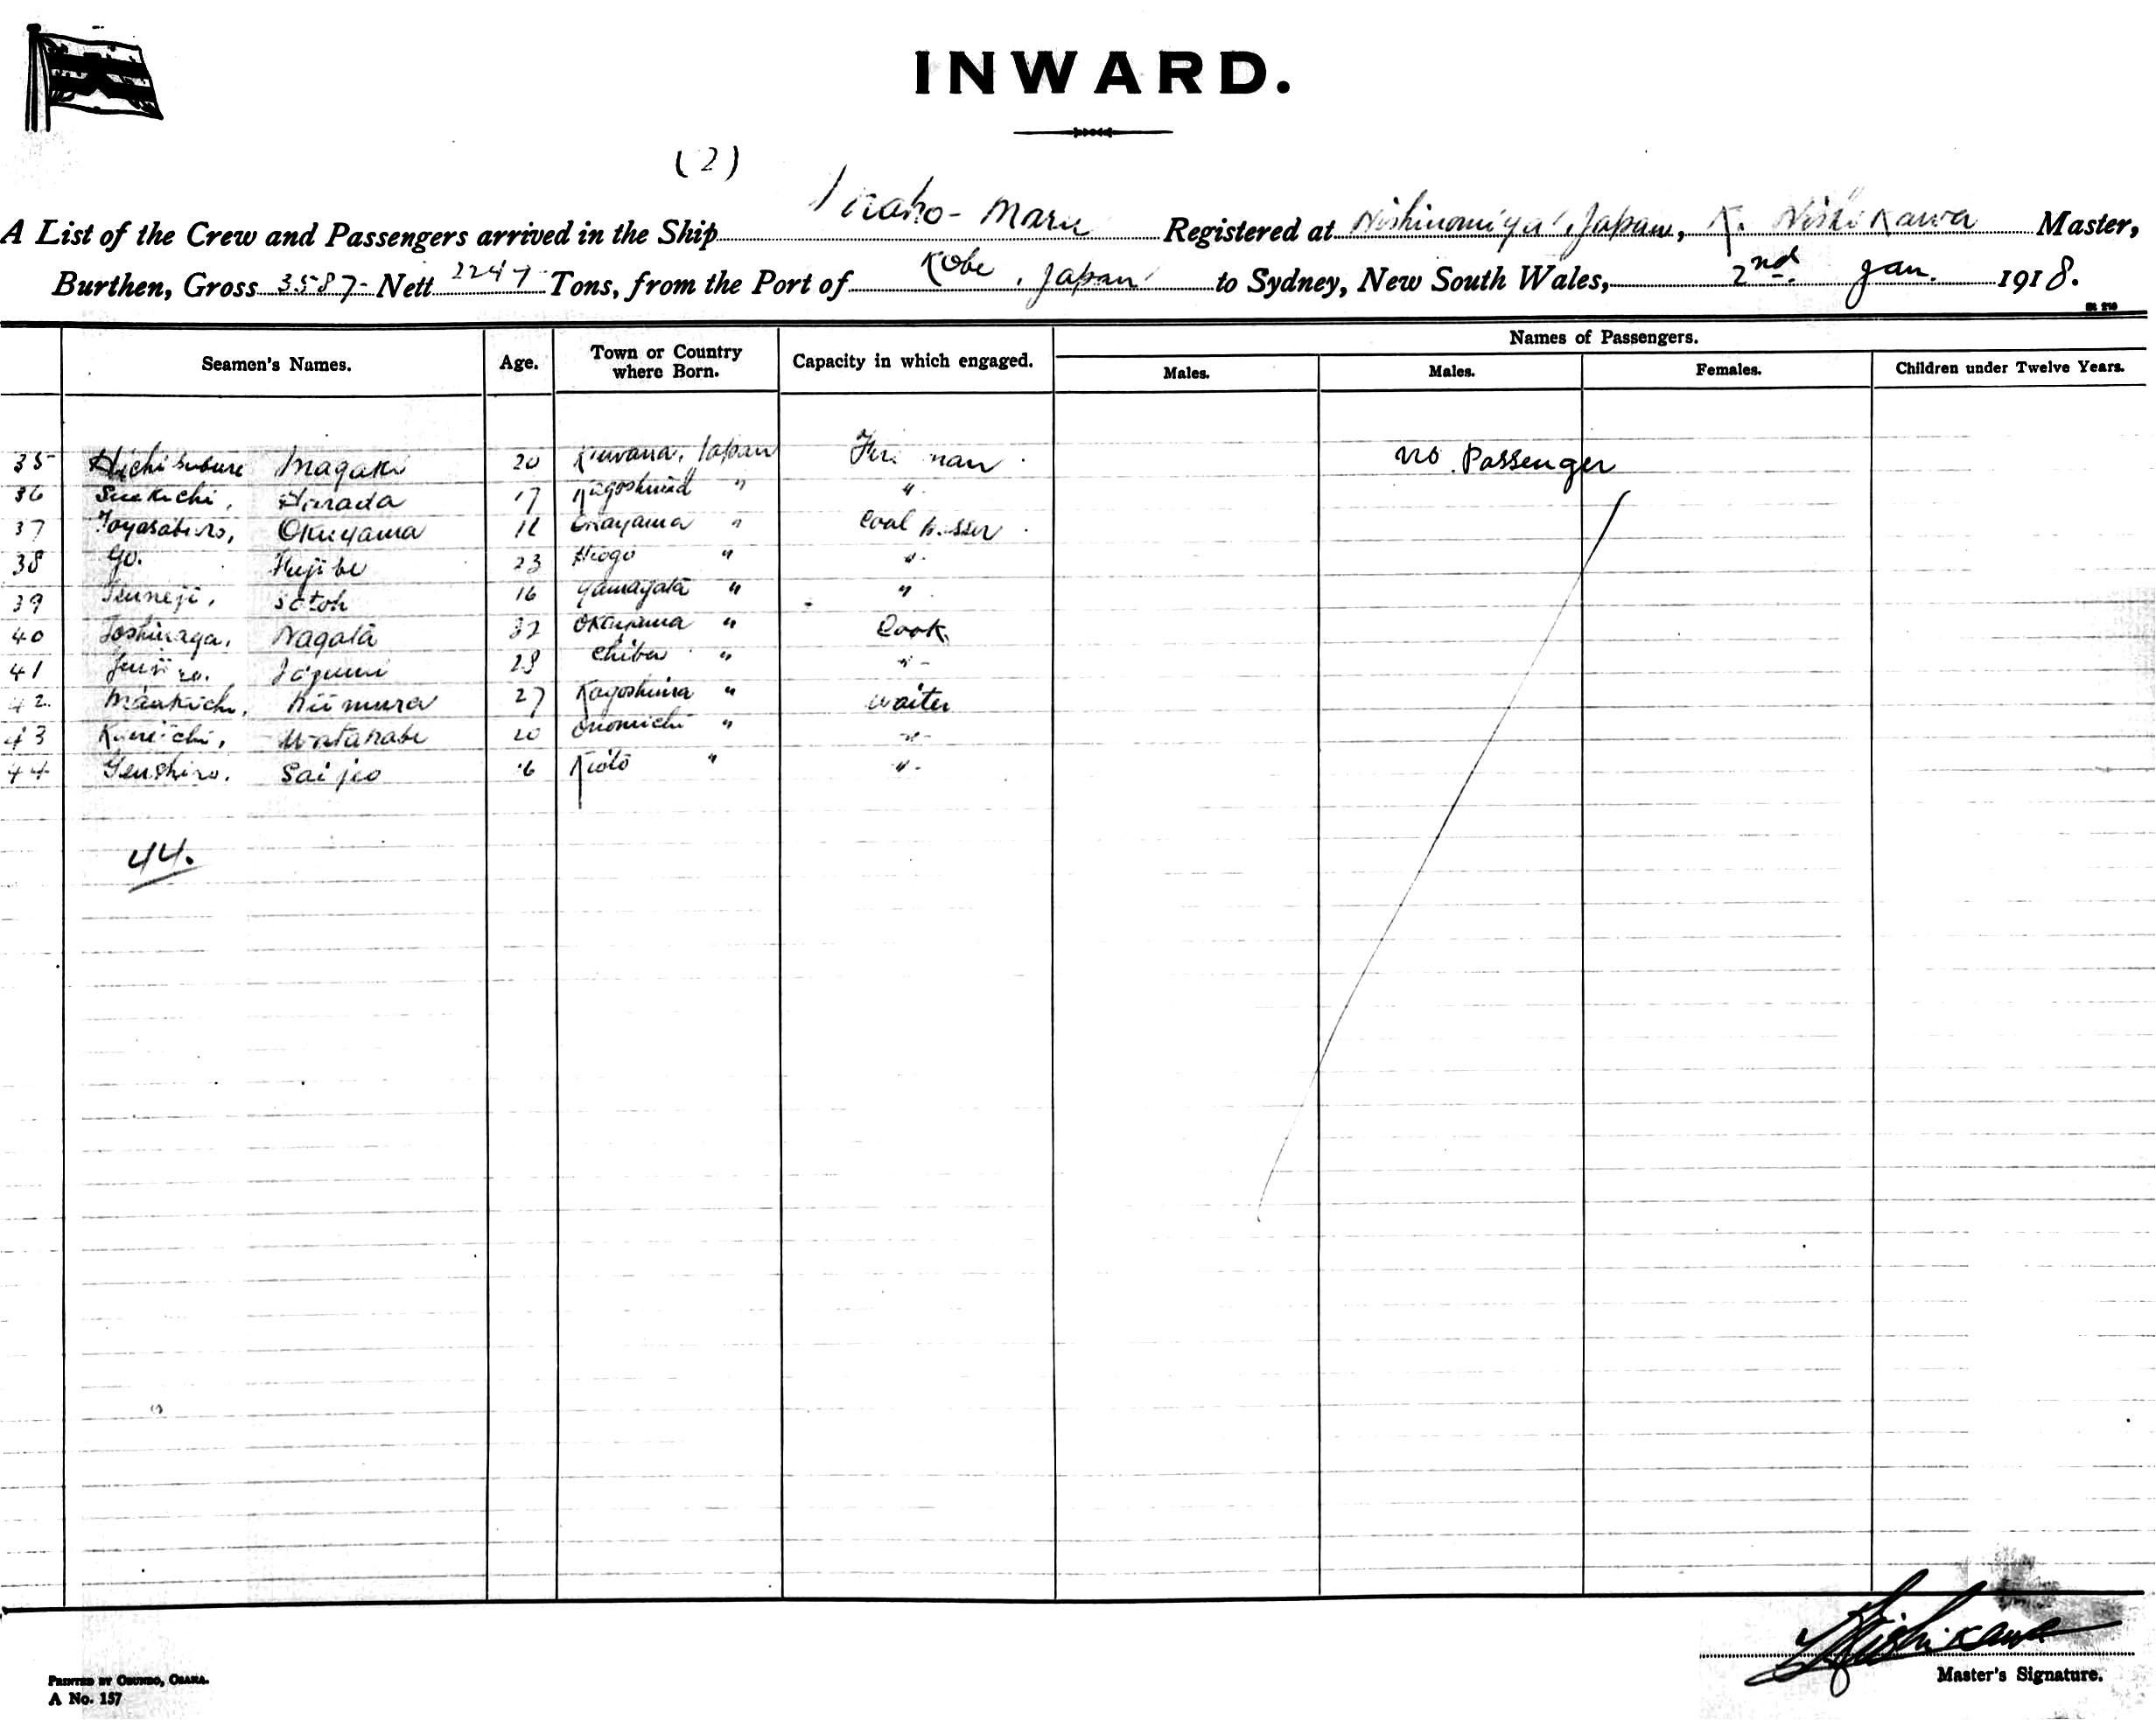 INWARD.
(2)
A List of the Crew and Passengers arrived in the Ship Maru Registered at Nishinomiya, Japan, K. Nishikawa Master,
Burthen, Gross 3587 Nett 2247 Tons, from the Port of Kobe, Japan to Sydney, New South Wales, 2nd Jan. 1918.
Names of Passengers.
Seamen's Names. Age. Town or Country where Born. Capacity in which engaged. Males. Males. Females. Children under Twelve Years.
35 Inagaki 20 Kuwana, Japan Fireman No Passenger
36 Suekichi, Harada 17 Kagoshima " "
37 Toyosaburo, Okuyama Okayama " Coal
38 Go. Fujibe 23 Hiogo " "
39 Tsuneji, Satoh 16 Yamagata " "
40 Toshinaga, Nagata Okayama " Cook.
41 28 Chiba " "
42. Kiimura 27 Kagoshima " Waiter
43 Kuneichi, Watanabe 20 Onomichi " "
44 Genshiro. Saijio 16 Kioto " "
44.
Nishikawa
Master's Signature.
PRINTED BY OSAKA.
A No. 157